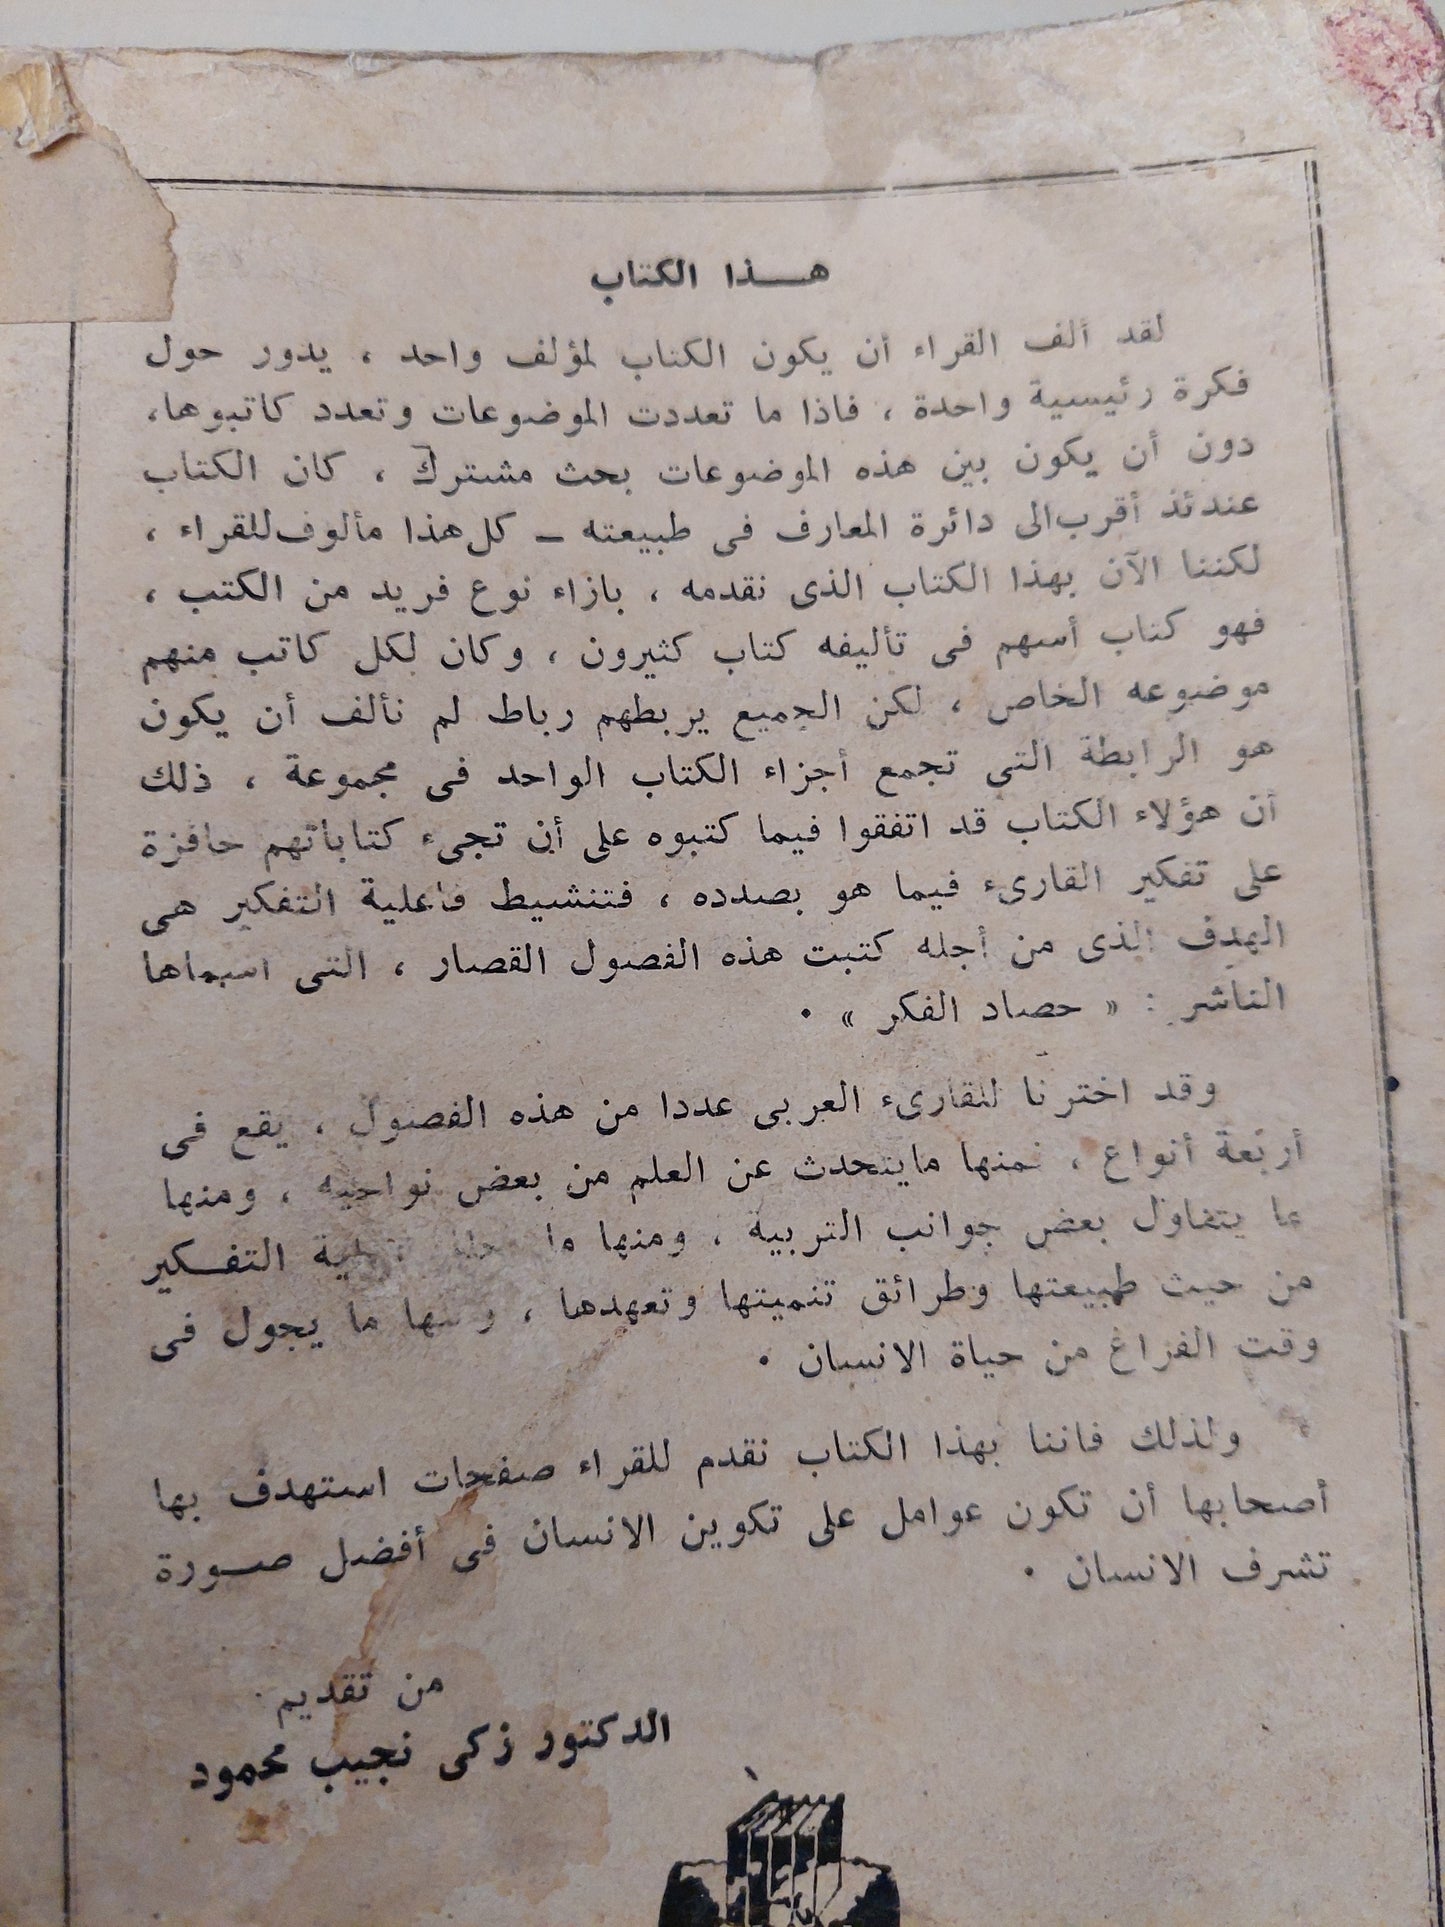 هـــذا الكتاب
لقد ألف القراء أن يكون الكتاب لمؤلف واحد ، يدور حول
فكرة رئيسية واحدة ، فاذا ما تعددت الموضوعات وتعدد كاتبوها،
دون أن يكون بين هذه الموضوعات بحث مشترك ، كان الكتاب
عندئذ أقرب الى دائرة المعارف فى طبيعته ــ كل هذا مألوف للقراء ،
لكننا الآن بهذا الكتاب الذى نقدمه ، بازاء نوع فريد من الكتب ،
فهو كتاب أسهم فى تأليفه كتاب كثيرون ، وكان لكل كاتب منهم
موضوعه الخاص ، لكن الجميع يربطهم رباط لم نألف أن يكون
هو الرابطة التى تجمع أجزاء الكتاب الواحد فى مجموعة ، ذلك
أن هؤلاء الكتاب قد اتفقوا فيما كتبوه على أن تجىء كتاباتهم حافزة
على تفكير القارىء فيما هو بصدده ، فتنشيط فاعلية التفكير هى
الهدف الذى من أجله كتبت هذه الفصول القصار ، التى اسماها
الناشر : « حصاد الفكر » .
وقد اخترنا للقارىء العربى عددا من هذه الفصول ، يقع فى
أربعة أنواع ، فمنها مايتحدث عن العلم من بعض نواحيه ، ومنها
ما يتناول بعض جوانب التربية ، ومنها ما التفــكير
من حيث طبيعتها وطرائق تنميتها وتعهدها ، ومنها ما يجول فى
وقت الفراغ من حياة الانسان .
ولذلك فاننا بهذا الكتاب نقدم للقراء صفحات استهدف بها
أصحابها أن تكون عوامل على تكوين الانسان فى أفضل صــورة
تشرف الانسان .
من تقديم
الدكتور زكى نجيب محمود